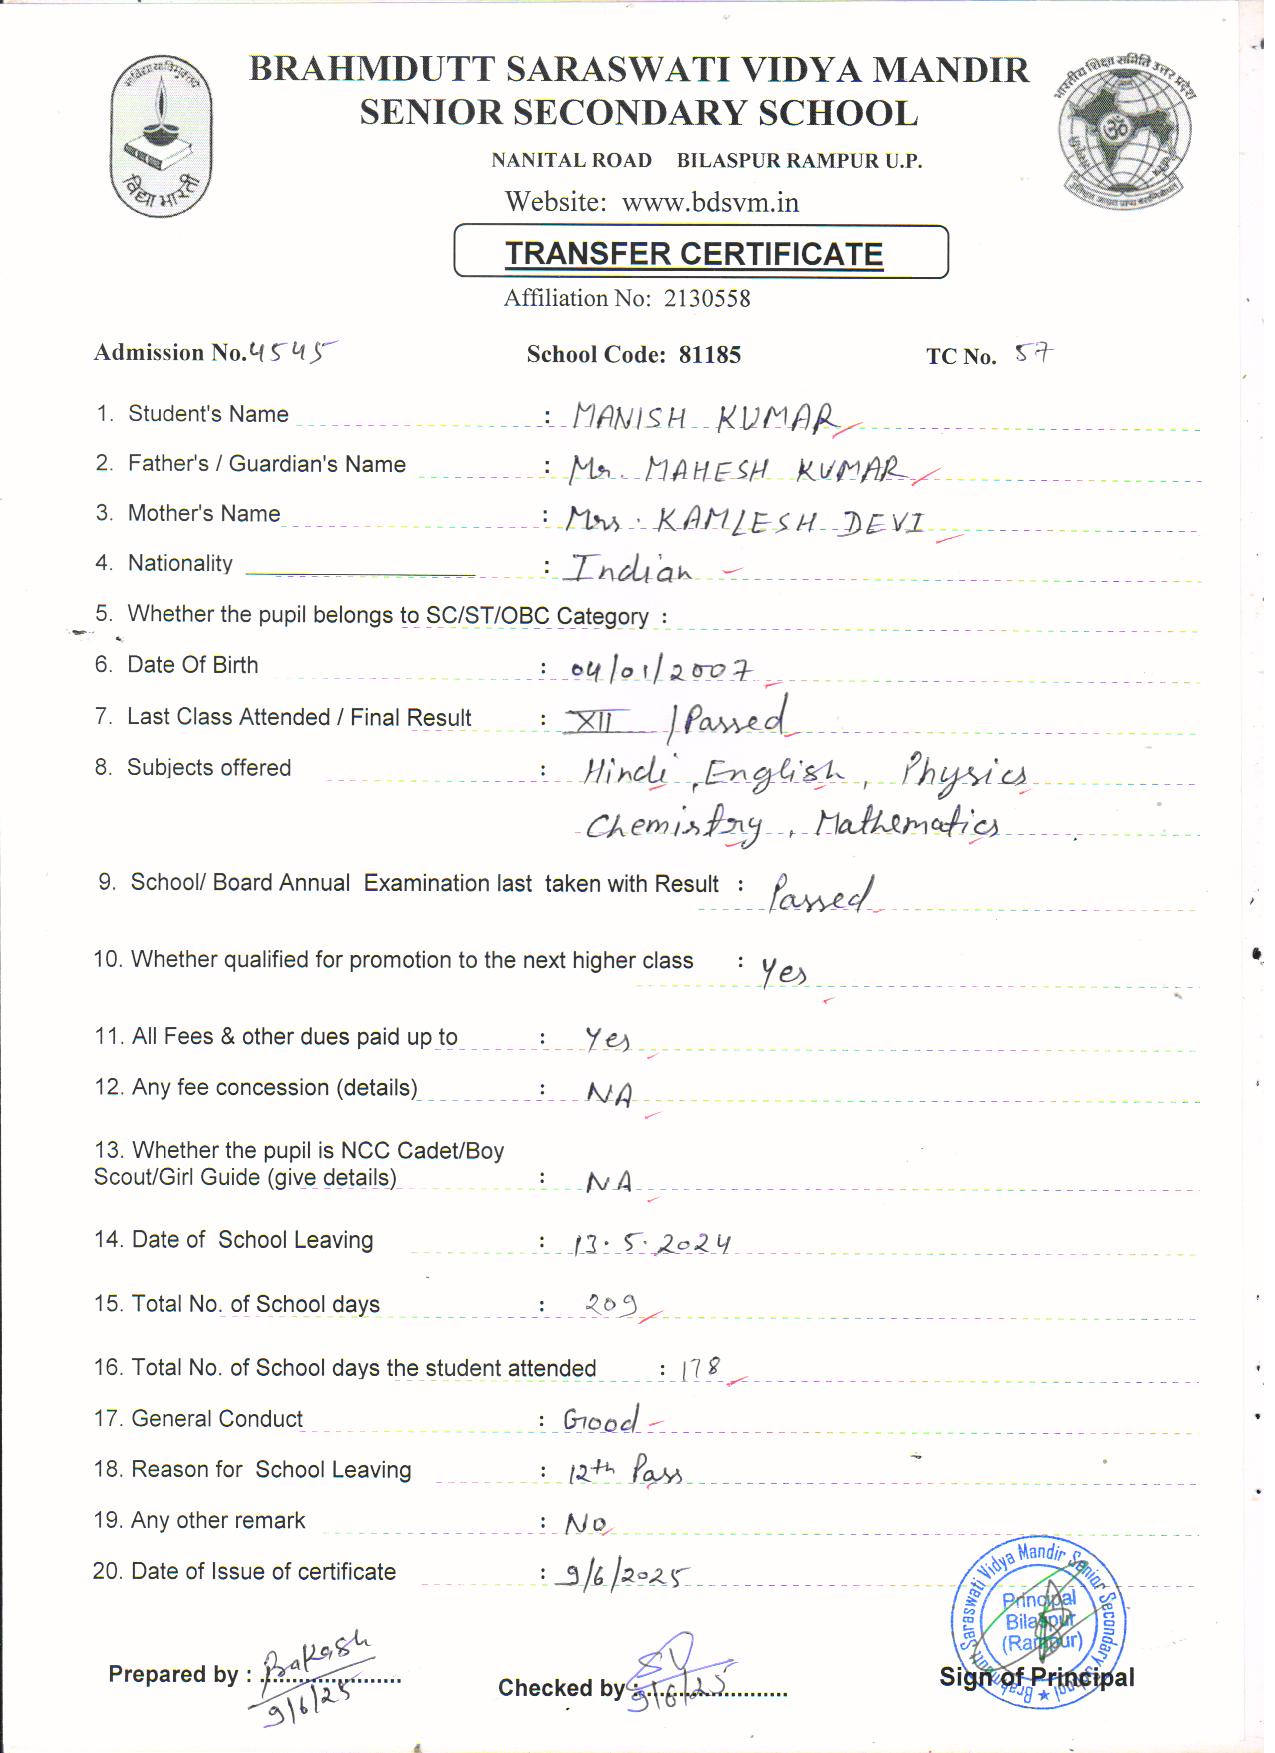 BRAHMDUTT SARASWATI VIDYA MANDIR
SENIOR SECONDARY SCHOOL
NANITAL ROAD BILASPUR RAMPUR U.P.
विद्या भारती
भारतीय शिक्षा समिति उत्तर प्रदेश
Website: www.bdsvm.in
TRANSFER CERTIFICATE
Affiliation No: 2130558
Admission No. 4545 School Code: 81185 TC No. 57
1. Student's Name : MANISH KUMAR
2. Father's / Guardian's Name : Mr. MAHESH KUMAR
3. Mother's Name : Mrs. KAMLESH DEVI
4. Nationality : Indian
5. Whether the pupil belongs to SC/ST/OBC Category :
6. Date Of Birth : 04/01/2007
7. Last Class Attended / Final Result : XII / Passed
8. Subjects offered : Hindi, English, Physics
Chemistry, Mathematics
9. School/ Board Annual Examination last taken with Result : Passed
10. Whether qualified for promotion to the next higher class : Yes
11. All Fees & other dues paid up to : Yes
12. Any fee concession (details) : NA
13. Whether the pupil is NCC Cadet/Boy
Scout/Girl Guide (give details) : NA
14. Date of School Leaving : 13.5.2024
15. Total No. of School days : 209
16. Total No. of School days the student attended : 178
17. General Conduct : Good
18. Reason for School Leaving : 12th Pass
19. Any other remark : No
20. Date of Issue of certificate : 9/6/2025
Saraswati Vidya Mandir Senior Secondary
Principal
Bilaspur
(Rampur)
Prepared by : 9/6/25
Checked by : 9/6/25
Sign of Principal